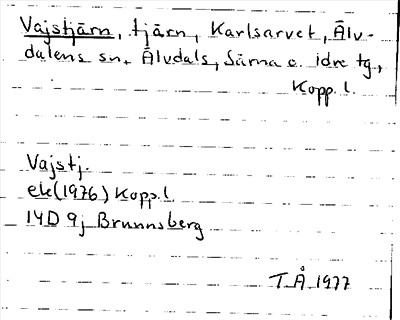 Vajstjärn, tjärn, Karlsarvet, Älv-
dalens sn, Älvdals, Särna o. idre tg,
Kopp. l.
Vajstj.
ek(1976) Kopp. l.
14D 9j Brunnsberg
T Å 1977